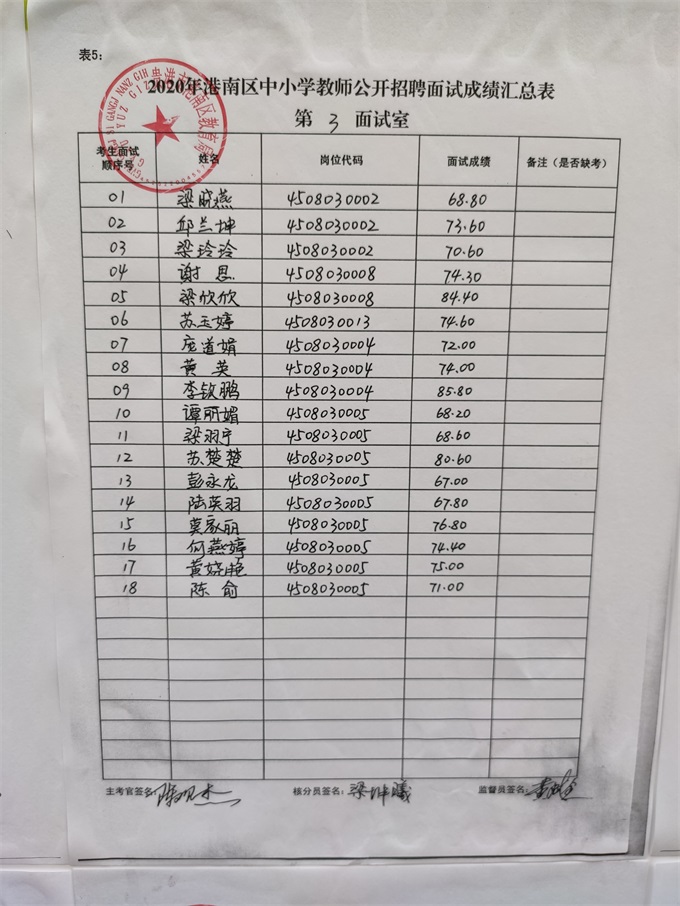 表5:
2020年港南区中小学教师公开招聘面试成绩汇总表
第 3 面试室
考生面试顺序号 姓名 岗位代码 面试成绩 备注（是否缺考）
01 梁晓燕 4508030002 68.80
02 邱兰坤 4508030002 73.60
03 梁玲玲 4508030002 70.60
04 谢思 4508030008 74.30
05 梁欣欣 4508030008 84.40
06 苏玉婷 4508030013 74.60
07 庞道娟 4508030004 72.00
08 黄英 4508030004 74.00
09 李钦鹏 4508030004 85.80
10 谭丽媚 4508030005 68.20
11 梁羽宁 4508030005 68.60
12 苏楚楚 4508030005 80.60
13 彭永龙 4508030005 67.00
14 陆英羽 4508030005 67.80
15 莫家丽 4508030005 76.80
16 何燕婷 4508030005 74.40
17 黄娆艳 4508030005 75.00
18 陈俞 4508030005 71.00
主考官签名: 核分员签名: 梁坤曦 监督员签名: